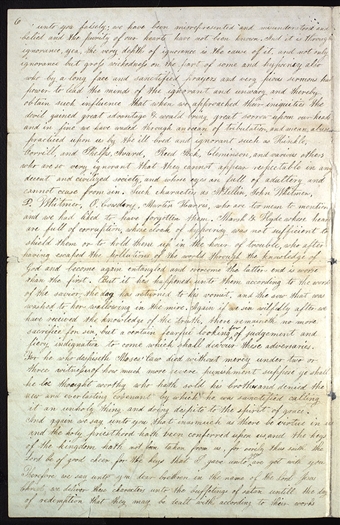 6
unto you falsely; we have been misrepresented and misunderstood and
belied and the purity of our hearts have not been known. And it is through
ignorance, yea, the very depth of ignorance is the cause of it, and not only
ignorance but gross wickedness on the part of some and hypocrisy also
who by a long face and sanctified prayers and very pious sermons had
power to lead the minds of the ignorant and unwary and thereby
obtain such influence that when we approached their iniquities the
devil gained great advantage & would bring great sorrow upon our heads
and in fine we have waded through an ocean of tribulation, and mean abuse
practised upon us by the ill bred and ignorant such as Hinkle,
Corrill, and Phelps, Avard, Reed Peck, Cleminson, and various others
who are so very ignorant that they cannot appear respectable in any
decent and civilized society, and whose eyes are full of adultery and
cannot cease from sin. Such characters as McLellin, John Whitmer,
D. Whitmer, O. Cowdery, Martin Harris, who are too mean to mention
and we had liked to have forgotten them. Marsh & Hyde whose hearts
are full of corruption, whose cloak of hypocrisy was not sufficient to
shield them or to hold them up in the hour of trouble, who after
having escaped the pollutions of the world through the knowledge of
God and become again entangled and overcome the latter end is worse
than the first. But it has happened unto them according to the word
of the savior, the dog has returned to his vomit, and the sow that was
washed to her wallowing in the mire. Again if we sin wilfully after we
have received the knowledge of the truth, there remaineth no more
sacrifice for sin, but a certain fearful looking for of judgement and
fiery indignation to come which shall devour these adversaries.
For he who despiseth Moses' law died without mercy under two or
three witnesses of how much more severe punishment suppose ye shall
he be thought worthy who hath sold his brother and denied the
new and everlasting covenant by which he was sanctified calling
it an unholy thing and doing despite to the spirit of grace.
And again we say unto you that inasmuch as there be virtue in us
and the holy priesthood hath been conferred upon us, and the keys
of the kingdom hath not been taken from us, for verily thus saith the
Lord be of good cheer for the keys that I gave unto you are yet with you
Therefore we say unto you dear brethren in the name of the Lord Jesus
Christ, we deliver these characters unto the buffetings of satan untill the day
of redemption that they may be dealt with according to their works